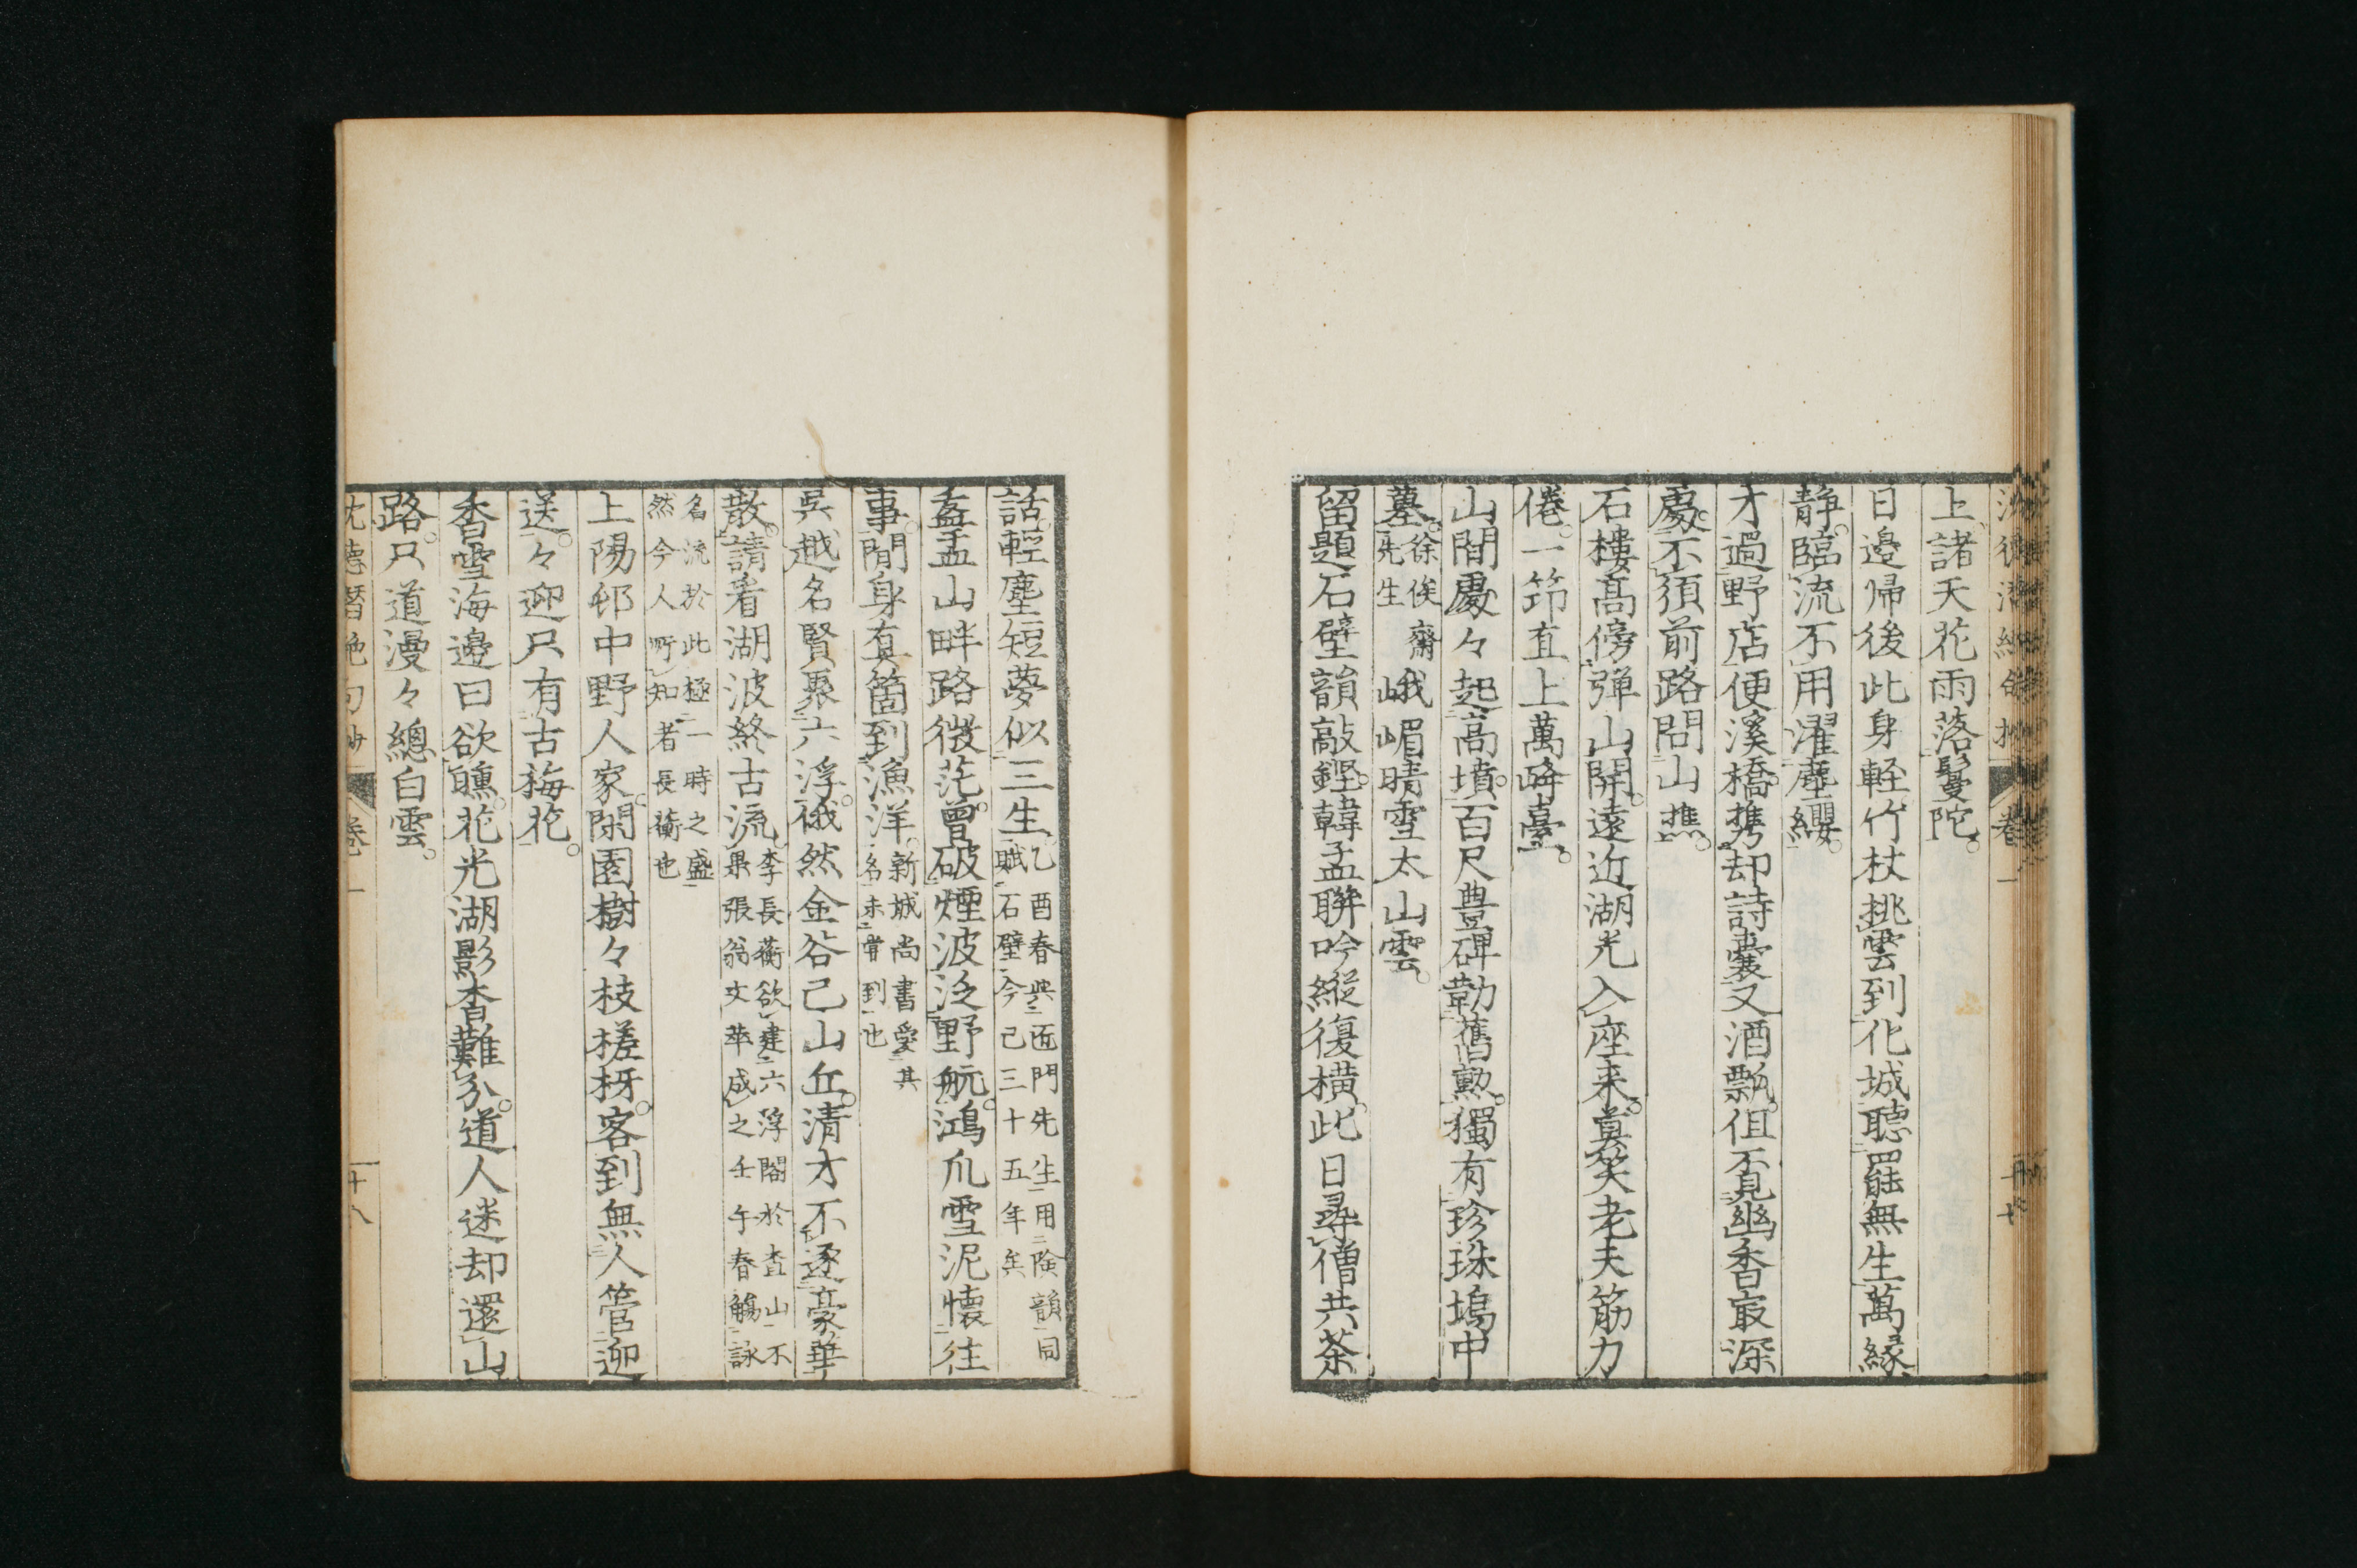 上諸天花雨落鬘陀
日邊帰後此身軽竹杖挑雲到化城聽罷無生萬縁
静臨流不用濯塵纓
才過野店便溪橋携却詩嚢又酒瓢但覓幽香㝡深
處不須前路問山樵
石樓高傍弾山開遠近湖光入座来莫笑老夫筋力
倦一筇直上萬峰臺
山間處々起高墳百尺豊碑勒舊勲獨有珍珠塢中
墓徐俟齋先生峨嵋晴雪太山雲
留題石壁韻敲鏗韓孟聯吟縦復横此日尋僧共茶
話輕塵短夢似三生乙酉春與匠門先生用険韻同賦石壁今已三十五年矣
盋盂山畔路微茫曾破煙波泛野航鴻爪雪泥懐往
事閒身真箇到漁洋新城尚書愛其名未嘗到也
呉越名賢聚六浮俄然金谷已山丘清才不逐豪華
散請看湖波終古流李長蘅欲建六浮閣於查山不果張翁文萃成之壬午春觴詠
名流於此極一時之盛然今人所知者長蘅也
上陽邨中野人家閑園樹々枝槎枒客到無人管迎
送々迎只有古梅花
香雪海邊曰欲曛花光湖影杳難分道人迷却還山
路只道漫々總白雲
沈德潛絶句抄 巻一 十八